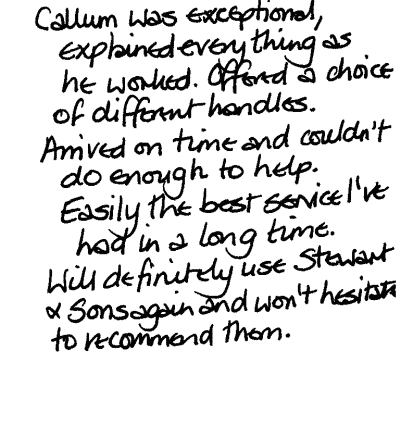 Callum was exceptional,
explained everything as
he worked. Offered a choice
of different handles.
Arrived on time and couldn't
do enough to help.
Easily the best service I've
had in a long time.
Will definitely use Stewart
& Sons again and won't hesitate
to recommend them.